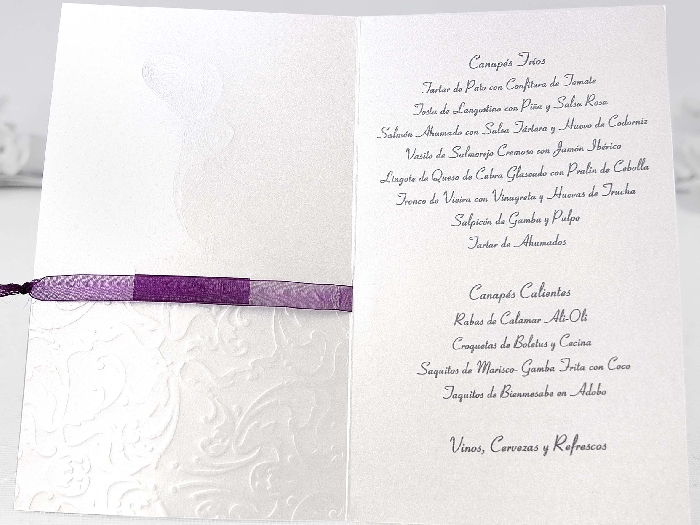 Canapés Fríos
Tartar de Pato con Confitura de Tomate
Tosta de Langostino con Piña y Salsa Rosa
Salmón Ahumado con Salsa Tártara y Huevo de Codorniz
Vasito de Salmorejo Cremoso con Jamón Ibérico
Lingote de Queso de Cabra Glaseado con Pralin de Cebolla
Tronco de Vieira con Vinagreta y Huevas de Trucha
Salpicón de Gamba y Pulpo
Tartar de Ahumados
Canapés Calientes
Rabas de Calamar Ali-Oli
Croquetas de Boletus y Cecina
Saquitos de Marisco- Gamba Frita con Coco
Taquitos de Bienmesabe en Adobo
Vinos, Cervezas y Refrescos